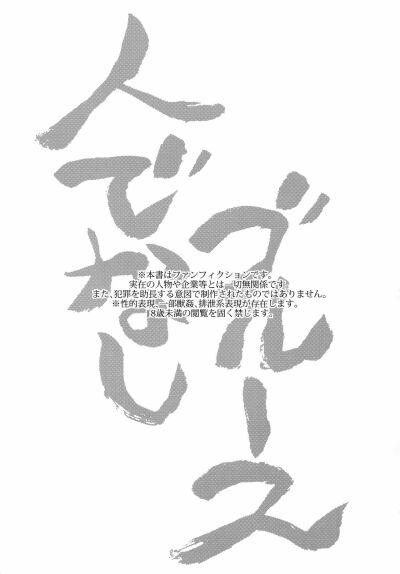 人でなし
ブルース
※本書はファンフィクションです。
実在の人物や企業等とは一切無関係です
また、犯罪を助長する意図で制作されたものではありません。
※性的表現、一部獣姦、排泄系表現が存在します。
18歳未満の閲覧を固く禁じます。